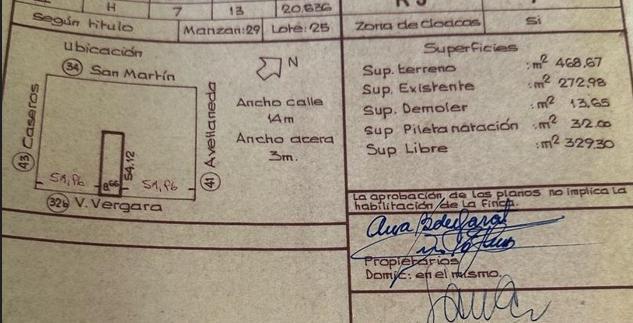 H 7 13 20.636
Según título Manzan:29 Lote:25 Zona de Cloacas Si
Ubicación
34 San Martín
43 Caseros
N
Ancho calle
14m
Ancho acera
3m.
41 Avellaneda
54,12
51,96 8,66 51,96
32b V. Vergara
Superficies
Sup. terreno :m² 468,67
Sup. Existente :m² 272,98
Sup. Demoler :m² 13,65
Sup Pileta natación :m² 32.00
Sup Libre :m² 329.30
La aprobación de los planos no implica la
habilitación de La Finca.
Propietarios
Domic: en el mismo.